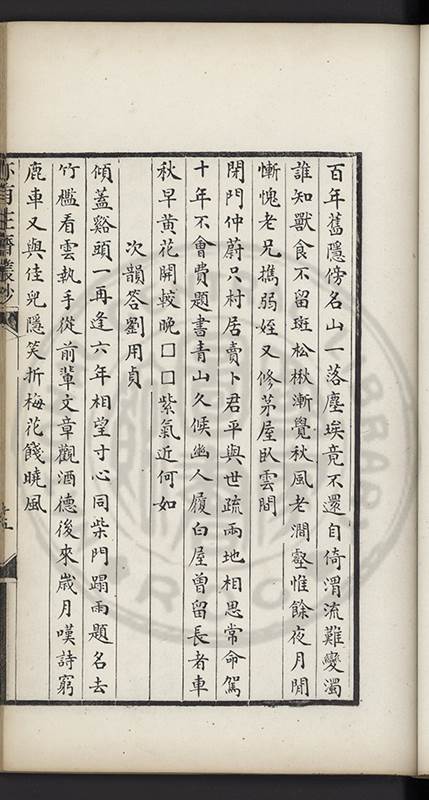 百年舊隱傍名山一落塵埃竟不還自倚渭流難變濁
誰知獸食不留斑松楸漸覺秋風老澗壑惟餘夜月閒
慚愧老兄攜弱姪又修茅屋臥雲間
閉門仲蔚只村居賣卜君平與世疏兩地相思常命駕
十年不會費題書青山久候幽人履白屋曾留長者車
秋早黃花開較晚囗囗紫氣近何如
次韻答劉用貞
傾蓋谿頭一再逢六年相望寸心同柴門蹋雨題名去
竹檻看雲執手從前輩文章觀酒德後來歲月嘆詩窮
鹿車又與佳兒隱笑折梅花餞曉風